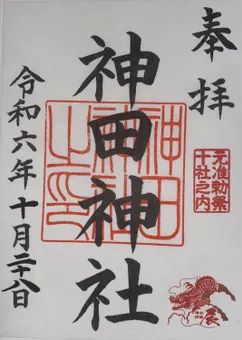 奉拝
元准勅祭
十社之内
神田神社
神田神社之印
令和六年十月二十八日